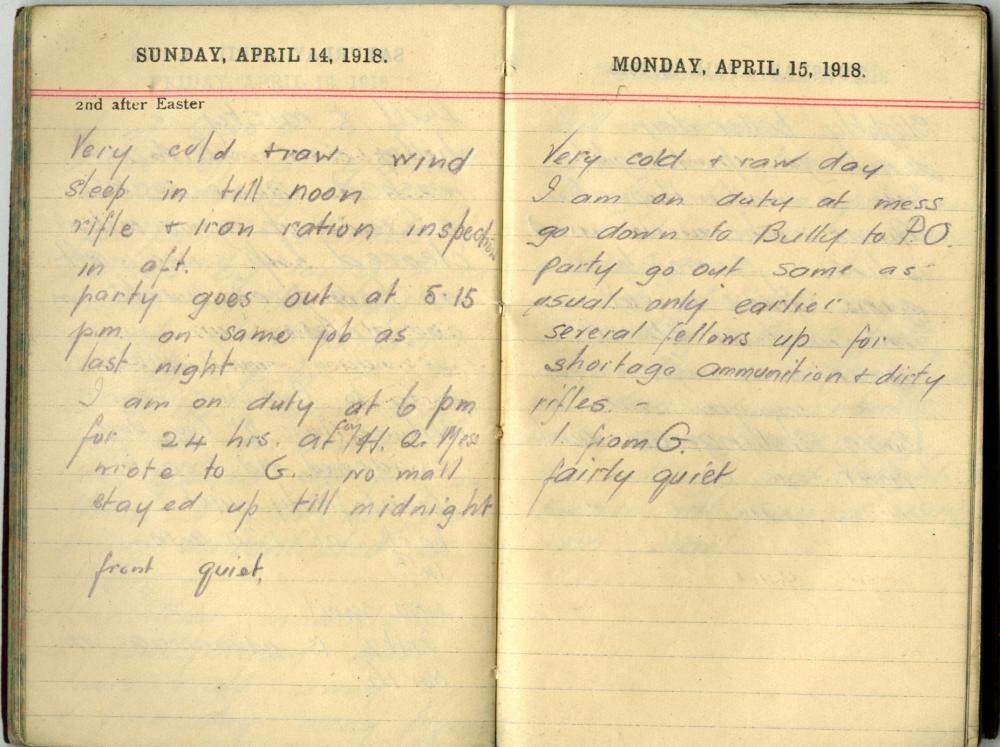 SUNDAY, APRIL 14, 1918.
2nd after Easter
Very cold + raw wind
sleep in till noon
rifle + iron ration inspection
in aft.
party goes out at 5.15
p.m. on same job as
last night
I am on duty at 6 pm
for 24 hrs. at H. Q. Mess
wrote to G. no mail
stayed up till midnight
front quiet.
MONDAY, APRIL 15, 1918.
Very cold + raw day
I am on duty at mess
go down to Bully to P.O.
party go out same as
usual only earlier
several fellows up for
shortage ammunition + dirty
rifles. -
1 from G.
fairly quiet